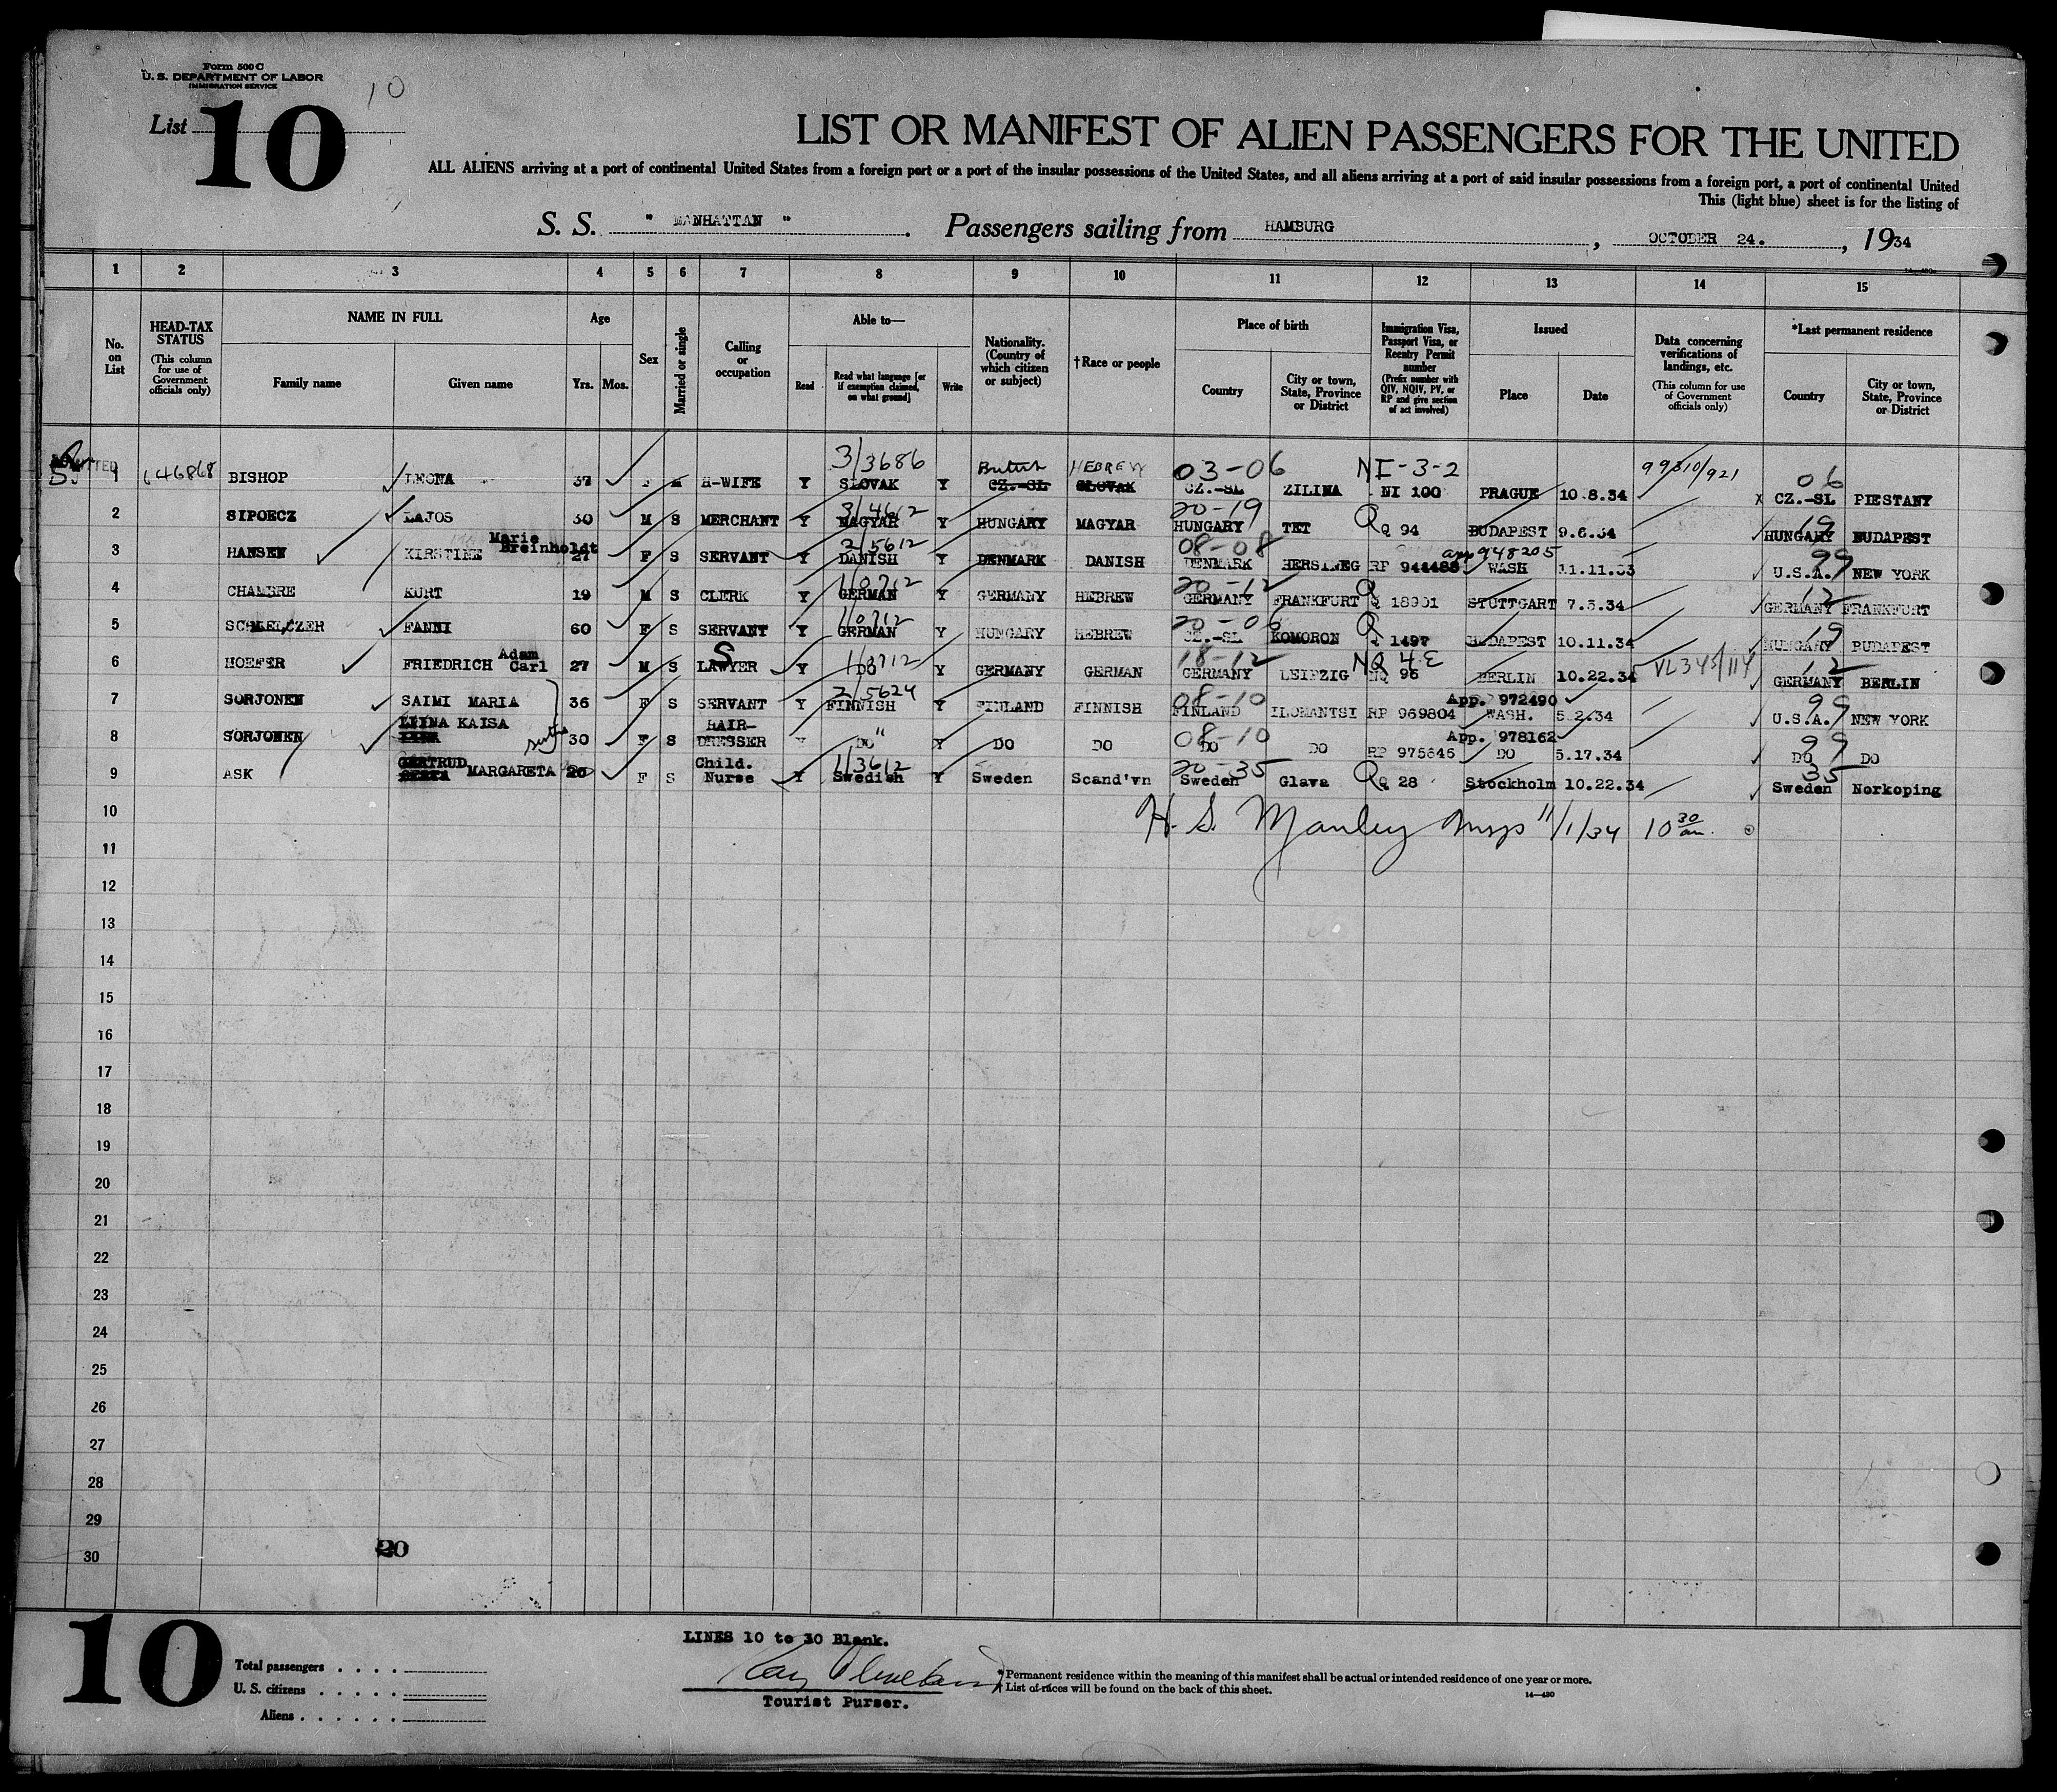 Form 500 C
U. S. DEPARTMENT OF LABOR
IMMIGRATION SERVICE
10
List 10
LIST OR MANIFEST OF ALIEN PASSENGERS FOR THE UNITED
ALL ALIENS arriving at a port of continental United States from a foreign port or a port of the insular possessions of the United States, and all aliens arriving at a port of said insular possessions from a foreign port, a port of continental United
This (light blue) sheet is for the listing of
S. S. " MANHATTAN " . Passengers sailing from HAMBURG , OCTOBER 24. , 1934
1 2 3 4 5 6 7 8 9 10 11 12 13 14 15
No. on List
HEAD-TAX STATUS (This column for use of Government officials only)
NAME IN FULL
Family name
Given name
Age
Yrs. Mos.
Sex
Married or single
Calling or occupation
Able to—
Read
Read what language [or if exemption claimed, on what ground]
Write
Nationality. (Country of which citizen or subject)
†Race or people
Place of birth
Country
City or town, State, Province or District
Immigration Visa, Passport Visa, or Reentry Permit number (Prefix number with QIV, NQIV, PV, or RP and give section of act involved)
Issued
Place
Date
Data concerning verifications of landings, etc. (This column for use of Government officials only)
*Last permanent residence
Country
City or town, State, Province or District
ADMITTED
3/3686 British HEBREW 03-06 NI-3-2 99810/921 06
1 646868 BISHOP LEONA 37 F M H-WIFE Y SLOVAK Y CZ.-SL SLOVAK CZ.-SL ZILINA NI 100 PRAGUE 10.8.34 x CZ.-SL PIESTANY
3/4612 20-19 Q 19
2 SIPOECZ LAJOS 30 M S MERCHANT Y MAGYAR Y HUNGARY MAGYAR HUNGARY TET Q 94 BUDAPEST 9.6.34 HUNGARY BUDAPEST
Marie Breinholdt 2/5612 08-08 app 948205 99
3 HANSEN KIRSTINE 27 F S SERVANT Y DANISH Y DENMARK DANISH DENMARK RP 944488 WASH 11.11.33 U.S.A. NEW YORK
1/0712 20-12 Q 12
4 CHAMBRE KURT 19 M S CLERK Y GERMAN Y GERMANY HEBREW GERMANY FRANKFURT Q 18901 STUTTGART 7.5.34 GERMANY FRANKFURT
1/0712 20-06 Q 19
5 FANNI 60 F S SERVANT Y GERMAN Y HUNGARY HEBREW CZ.-SL KOMORON Q 1497 BUDAPEST 10.11.34 HUNGARY BUDAPEST
Adam Carl S 18-12 NQ 4-E VL345/114 12
6 HOEFER FRIEDRICH 27 M S LAWYER Y DO Y GERMANY GERMAN GERMANY LEIPZIG NQ 96 BERLIN 10.22.34 GERMANY BERLIN
2/5624 08-10 App. 972490 99
7 SORJONEN SAIMI MARIA 36 F S SERVANT Y FINNISH Y FINLAND FINNISH FINLAND ILOMANTSI RP 969804 WASH. 5.2.34 U.S.A. NEW YORK
KAISA HAIR- " 08-10 App. 978162 99
8 SORJONEN 30 F S DRESSER Y DO Y DO DO DO DO RP 975645 DO 5.17.34 DO DO
GERTRUD Child. 1/3612 20-35 Q 35
9 ASK MARGARETA 20 F S Nurse Y Swedish Y Sweden Scand'vn Sweden Glava Q 28 Stockholm 10.22.34 Sweden Norkoping
10 H. S. Manley Insp 11/1/34 10 30 am.
11
12
13
14
15
16
17
18
19
20
21
22
23
24
25
26
27
28
29
30
20
10
LINES 10 to 30 Blank.
Total passengers . . . .
U. S. citizens . . . . .
Aliens . . . . . .
Tourist Purser.
* Permanent residence within the meaning of this manifest shall be actual or intended residence of one year or more.
† List of races will be found on the back of this sheet.
14—430